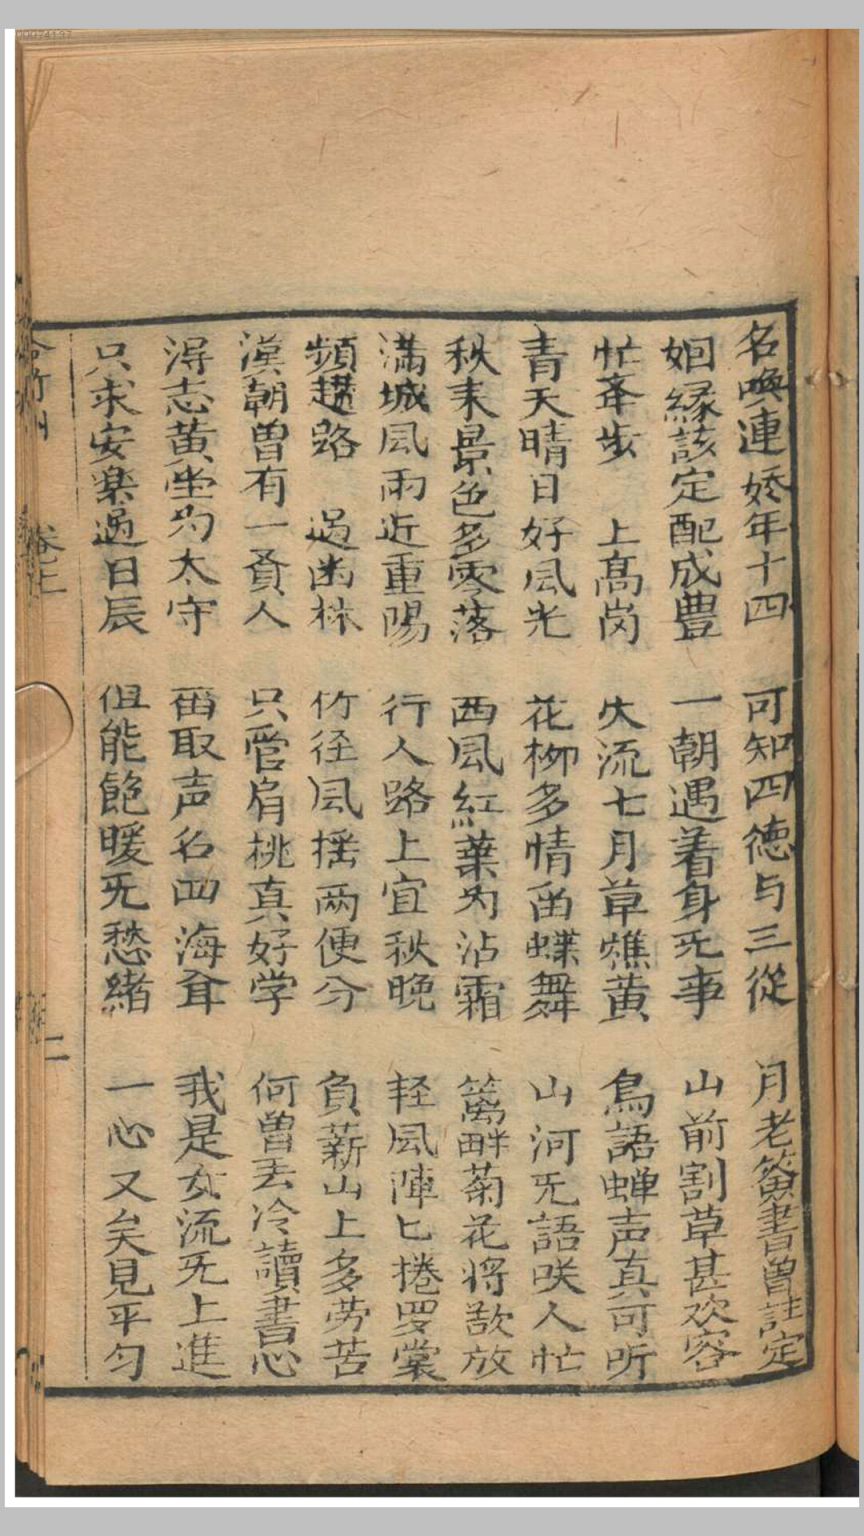 名喚連娇年十四 可知四德与三從 月老簽書曾註定
姻緣該定配成豊 一朝遇着身旡事 山前割草甚欢容
忙夆步 上高岗 大流七月草樵黄 鳥語蝉声真可听
青天晴日好風光 花柳多情畄蝶舞 山河旡語咲人忙
秋来景色多零落 西風紅葉为沾霜 篱畔菊花将欲放
滿城風雨近重陽 行人路上宜秋晚 轻風陣匕捲罗裳
頻趱路 过幽林 竹径風摇两便分 負薪山上多劳苦
漢朝曾有一貧人 只管肩桃真好学 何曾丢冷讀書心
淂志黄坐为太守 畱取声名四海耸 我是女流旡上進
只求安楽過日辰 但能飽暖旡愁緒 一心又矣見平匀
卷上
二